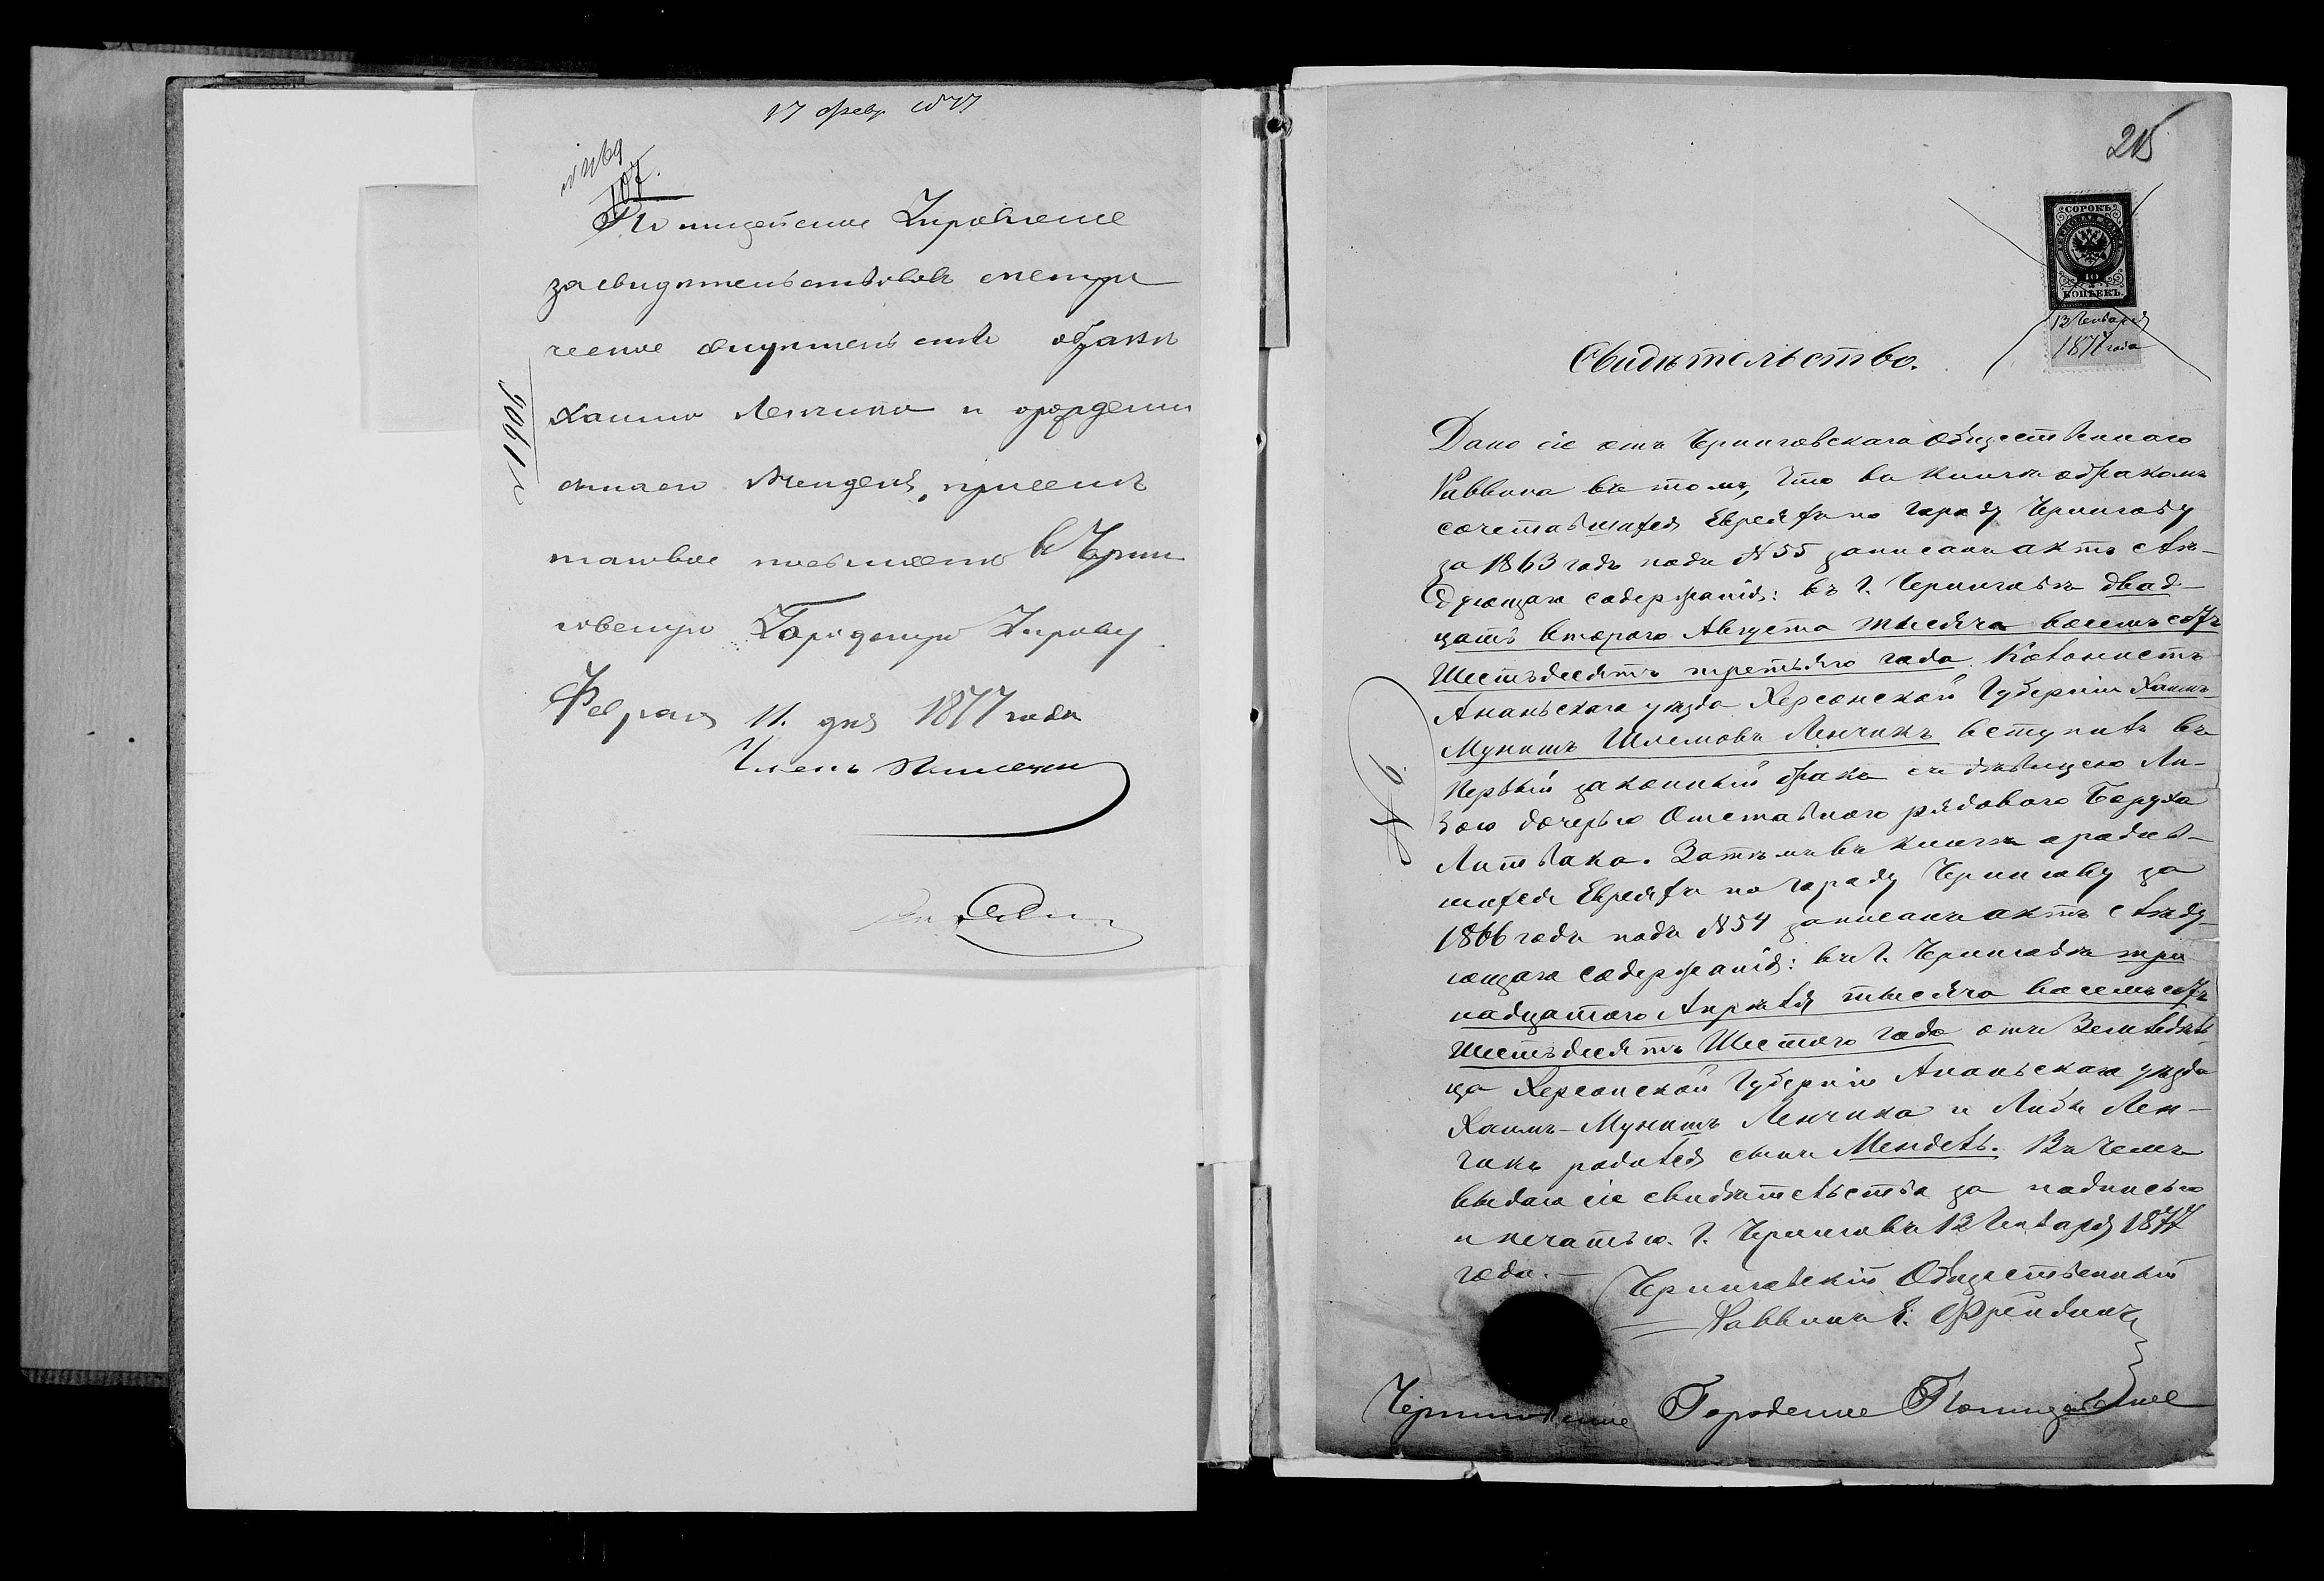 17 февр. 1877
107.
Полицейское Управленіе
засвидѣтельствовавъ метри
ческое свидѣтельство о бракѣ
Хаима Ленчика и о рожденіи
сына его Менделя,
таковое въ Черни
говскую Городскую Управу.
Февраля 11. дня 1877 года
Членъ
№ 1906
215
СОРОКЪ
40
КОПѢЕКЪ.
12 Генваря
1877 года
Свидѣтельство.
Дано сіе отъ Черниговскаго Общественнаго
Раввина въ томъ, что въ книгѣ о бракомъ
сочетавшихся Евреяхъ по городу Чернигову
за 1863 годъ подъ № 55 записанъ актъ слѣ-
дующаго содержанія: въ г. Черниговѣ двад-
цать втораго Августа тысяча восемьсотъ
Шестьдесятъ третьяго года Колонистъ
Ананьскаго уѣзда Херсонской Губерніи Хаимъ-
Мунишъ Шлемовъ Ленчикъ вступилъ въ
первый законный бракъ съ дѣвицею Ли-
бою дочерью Отставнаго рядоваго Боруха
Литвака. Затѣмъ въ книгѣ о родив-
шихся Евреяхъ по городу Чернигову за
1866 годъ подъ № 54 записанъ актъ слѣду-
ющаго содержанія: въ г. Черниговѣ три
надцатого Апрѣля тысяча восемьсотъ
Шестьдесятъ Шестого года отъ Земледѣль
ца Херсонской Губерніи Ананьскаго уѣзда
Хаимъ-Мунишъ Ленчика и Либы Лен-
чикъ родился сынъ Мендель. Въ чемъ
выдаю сіе свидѣтельство за подписью
и печатью. г. Черниговъ 12 Генваря 1877
года.
Черниговскій Общественный
Раввинъ Е. Фрейдинъ
Черниговское Городское Полицейское